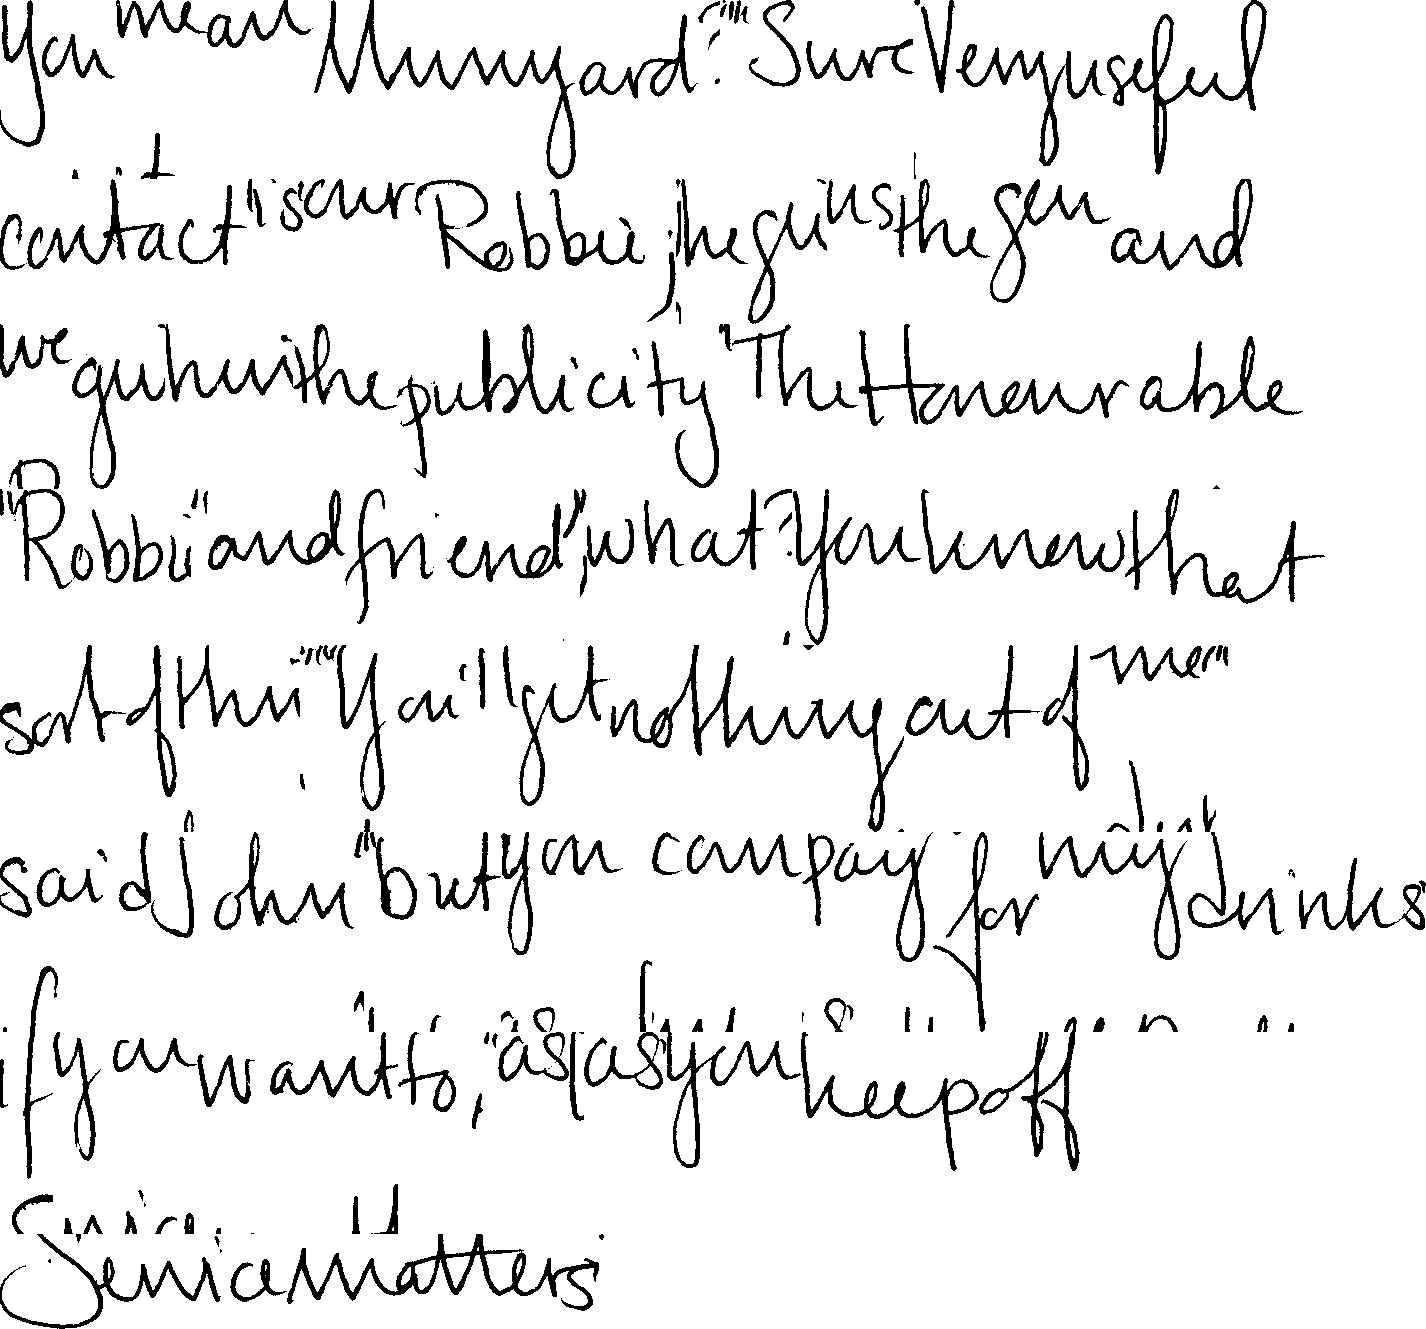 You mean Munyard?" "Sure Very useful
contact" is our Robbie, he givs us the gen and
we giv him the publicity "The Honourable
"Robbie" and friend", what? You know that
sort of thin" "You'll get nothing out of me"
said John "but you can pay for my drinks
if you want to, "as as you keep off
Service matters